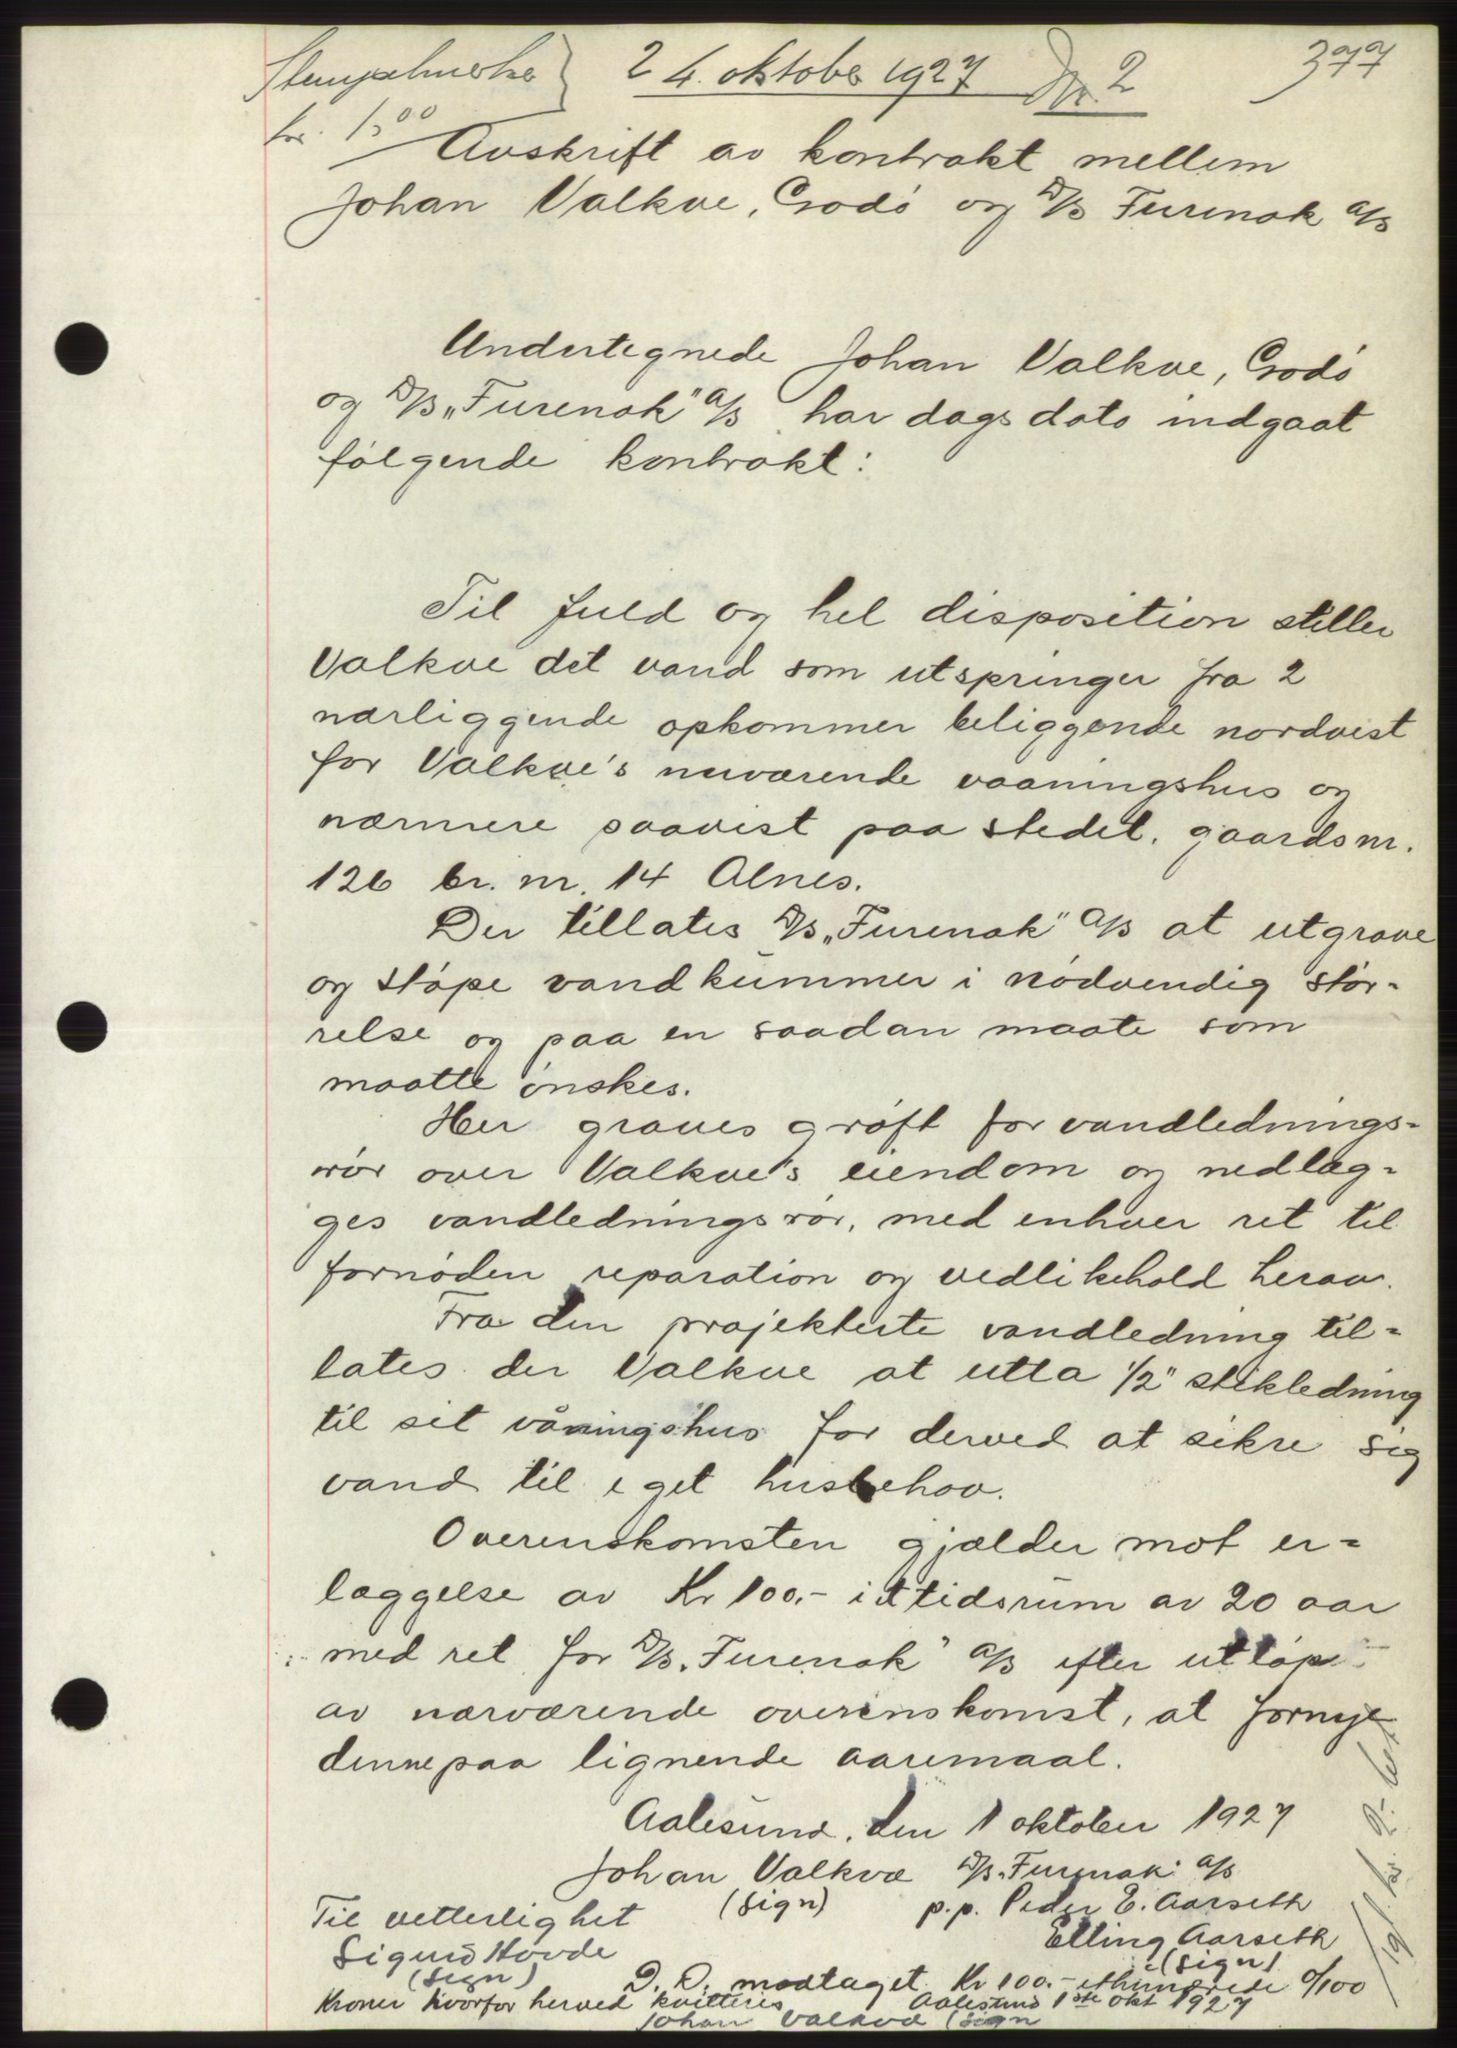 Stempelmerke 24. oktober 1927 Nr. 2 377
kr. 1.00
Avskrift av kontrakt mellem
Johan Valkve, Godö og D/S Furenak A/S
Undertegnede Johan Valkve, Godö
og D/S „Furenak" A/S har dags dato indgaat
følgende kontrakt:
Til fuld og hel disposition stiller
Valkve det vand som utspringer fra 2
nærliggende opkommer beliggende nordvest
for Valkve's nuværende vaaningshus og
nærmere paavist paa stedet. gaardsnr.
126 br. nr. 14 Alnes.
Der tillates D/S „Furenak" A/S at utgrave
og støpe vandkummer i nødvendig stør-
relse og paa en saadan maate som
maatte ønskes.
Her graves grøft for vandlednings-
rør over Valkve's eiendom og nedlæg-
ges vandledningsrør, med enhver ret til
fornøden reparation og vedlikehold herav.
Fra den projekterte vandledning til-
lates der Valkve at utta 1/2" stikledning
til sit våningshus for derved at sikre sig
vand til eget husbehov.
Overenskomsten gjælder mot er-
læggelse av Kr 100.- i et tidsrum av 20 aar
med ret for D/S „Furenak" A/S efter utløp
av nærværende overenskomst, at fornye
denne paa lignende aaremaal.
Aalesund, den 1 oktober 1927
Johan Valkvæ D/S „Furenak" A/S
(sign) p.p. Peder E. Aarseth
Til vetterlighet Elling Aarseth
Sigurd Hovde (sign)
(sign) D. D. modtaget Kr 100.- ethundrede 0/100
Kroner hvorfor herved kvitteres Aalesund 1ste okt 1927
Johan Valkvæ (sign